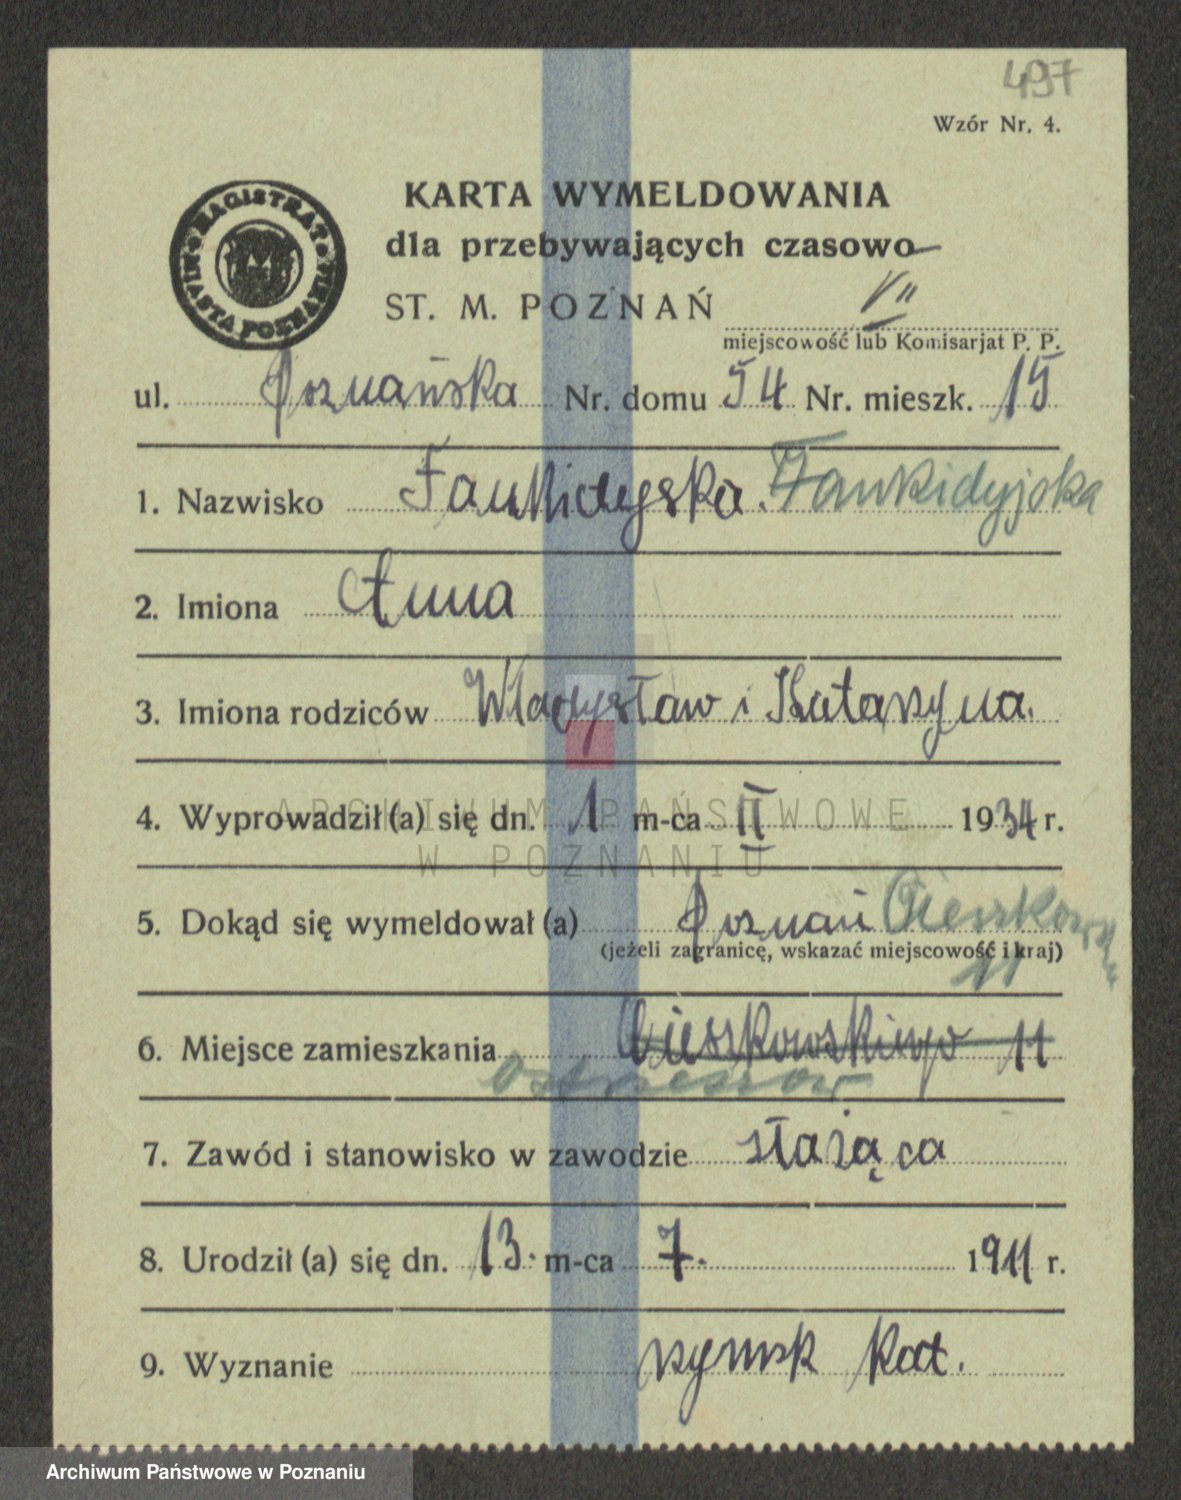 497
Wzór Nr. 4.
MAGISTRAT MIASTA POZNANIA
KARTA WYMELDOWANIA
dla przebywających czasowo
ST. M. POZNAŃ VII
miejscowość lub Komisarjat P. P.
ul. Poznańska Nr. domu 54 Nr. mieszk. 15
1. Nazwisko Fankidyska. Fankidyjska
2. Imiona Anna
3. Imiona rodziców Władysław i Katarzyna.
4. Wyprowadził(a) się dn. 1 m-ca II 1934 r.
ARCHIWUM PAŃSTWOWE
W POZNANIU
5. Dokąd się wymeldował(a) Poznań
(jeżeli zagranicę, wskazać miejscowość i kraj)
11
6. Miejsce zamieszkania Cieszkowskiego 11
Ostrzeszów
7. Zawód i stanowisko w zawodzie służąca
8. Urodził (a) się dn. 13. m-ca 7. 1911 r.
9. Wyznanie rzymsk kat.
Archiwum Państwowe w Poznaniu